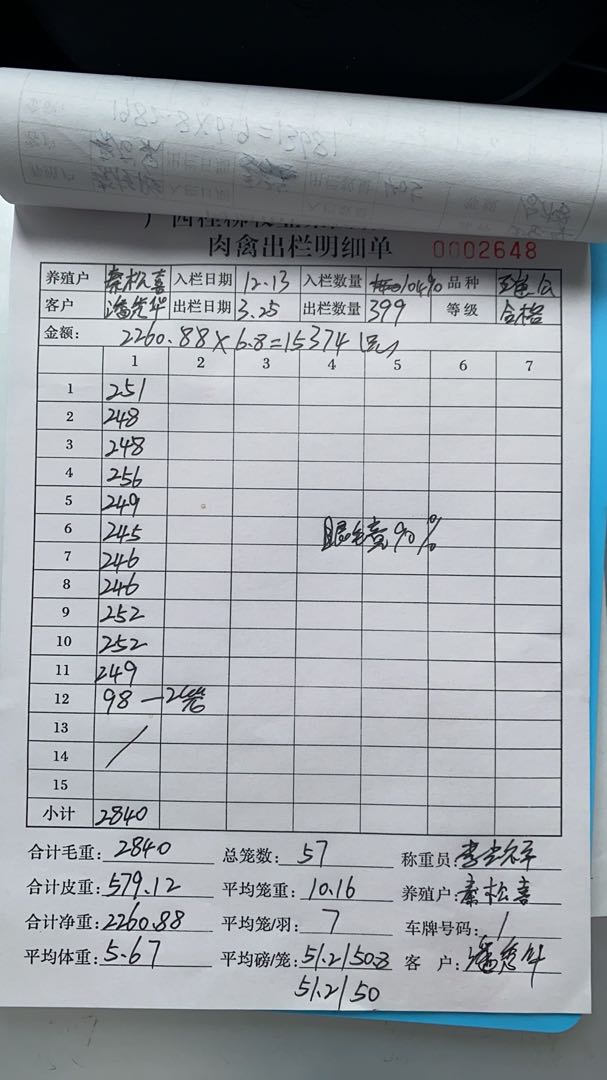 肉禽出栏明细单 0002648
养殖户 秦松喜 入栏日期 12.13 入栏数量 品种
客户 出栏日期 3.25 出栏数量 399 等级 合格
金额: 2260.88×6.8=15374元
1 2 3 4 5 6 7
1 251
2 248
3 248
4 256
5 249
6 245 眼毛亮90%
7 246
8 246
9 252
10 252
11 249
12 98 —2笼
13
14 /
15
小计 2840
合计毛重: 2840 总笼数: 57 称重员:
合计皮重: 579.12 平均笼重: 10.16 养殖户: 秦松喜
合计净重: 2260.88 平均笼/羽: 7 车牌号码: /
平均体重: 5.67 平均磅/笼: 51.2/50 客 户:
51.2/50